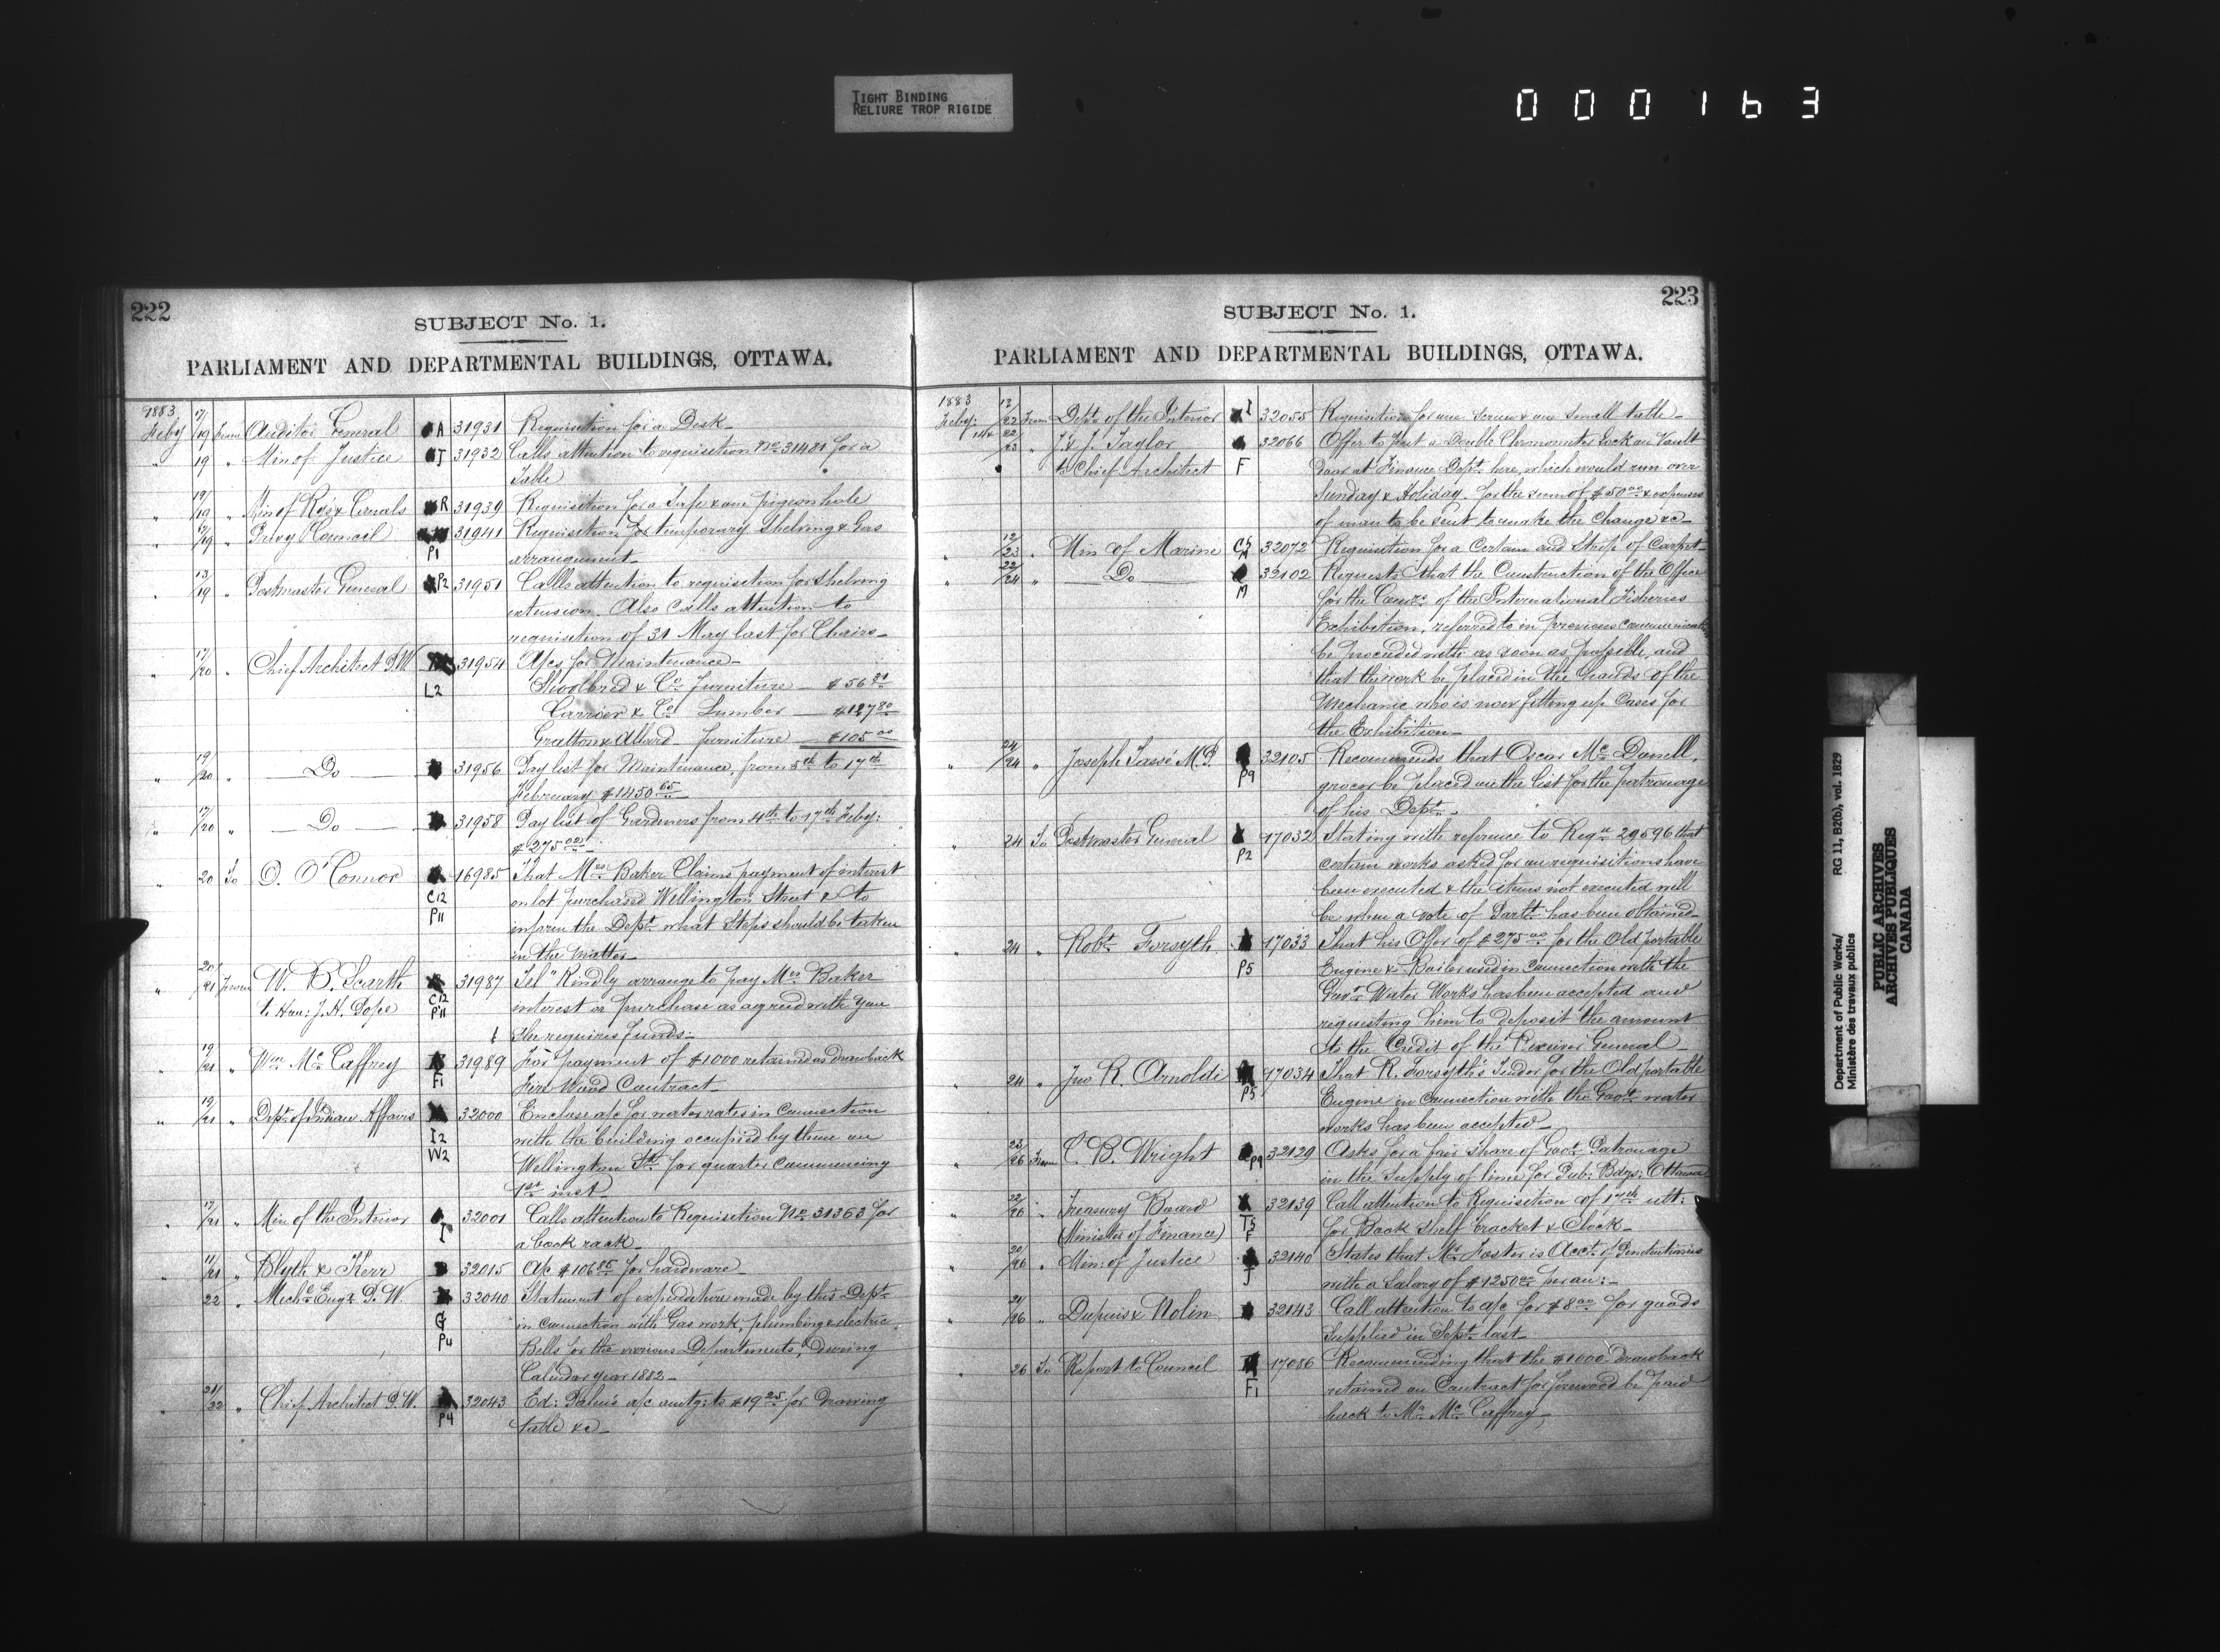 TIGHT BINDING
RELIURE TROP RIGIDE
000163
222
SUBJECT No. 1.
PARLIAMENT AND DEPARTMENTAL BUILDINGS, OTTAWA.
1883
Feby 17/19 from Auditor General A 31931 Requisition for a Desk
" 19 " Min of Justice J 31932 Calls attention to requisition No 31481 for a
Table
" 19/19 " Min of Rys & Canals R 31939 Requisition for a Safe & one pigeon hole
" 17/19 " Privy Council 31941 Requisition for temporary Shelving & Gas
P1 arrangement
" 13/19 " Postmaster General P2 31951 Calls attention to requisition for shelving
extension. Also calls attention to
requisition of 31 May last for Chairs
" 17/20 " Chief Architect P.W. 31954 A/cs for Maintenance
L2 Shoolbred & Co Furniture $56
Carrier & Co Lumber $127 80
Gratton & Allard furniture $105 00
" 19/20 " Do 31956 Pay list for Maintenance, from 5th to 17th
February $1450 65
" 17/20 " Do 31958 Pay list of Gardeners from 4th to 17th Feby:
$275 00
" 20 To D. O'Connor 16985 That Mrs Baker Claims payment of interest
C12 on lot purchased Wellington Street & to
P11 inform the Dept what Steps should be taken
in the Matter
" 20/21 from W. B. Scarth 31987 Tel "Kindly arrange to pay Mrs Baker
to Hon: J. H. Pope C12 P11 interest or purchase as agreed with you
She requires funds
" 19/21 " Wm McCaffrey 31989 For payment of $1000 retained as drawback
F1 Fire Wood Contract
" 19/21 " Dept of Indian Affairs 32000 Enclose a/c for water rates in Connection
I2 with the building occupied by them on
W2 Wellington St for quarter Commencing
1st inst
" 17/21 " Min of the Interior 32001 Calls attention to Requisition No 31363 for
I a book rack
" 17/21 " Blyth & Kerr 32015 A/c $106 85 for hardware
22 " Mechl Engr P. W. 32040 Statement of expenditure made by this Dept
G in connection with Gas work, plumbing & electric
P4 Bells for the various Departments, during
Calendar year 1882
" 21/22 " Chief Architect P.W. 32043 Ed: a/c amtg: to $19 25 for Drawing
P4 table &c
223
SUBJECT No. 1.
PARLIAMENT AND DEPARTMENTAL BUILDINGS, OTTAWA.
1883
Feby: 13/22 From Dept of the Interior I 32055 Requisition for one Screen & one Small table
22/23 " J. & J. Taylor 32066 Offer to put a Double Chronometer Lock on Vault
to Chief Architect F Door at Finance Dept here, which would run over
Sunday & Holiday. for the sum of $50 00 & expenses
of man to be sent to make the Change &c
" 12/23 " Min of Marine 32072 Requisition for a Certain and Strip of Carpet
" 22/24 " Do 32102 Requests that the Construction of the Office
M for the Comrs of the International Fisheries
Exhibition, referred to in previous Communication
be proceeded with as soon as possible, and
that the work be placed in the hands of the
Mechanic who is now fitting up Cases for
the Exhibition
" 24/24 " Joseph Tassé M.P. 32105 Recommends that Oscar McDonell,
P9 grocer be placed on the list for the patronage
of his Dept
" 24 To Postmaster General 17032 Stating with reference to Reqn 29596 that
P2 certain works asked for on requisitions have
been executed & the items not executed will
be when a vote of Parlt has been obtained
" 24 " Robt Forsyth 17033 That his Offer of $275 00 for the Old portable
P5 Engine & Boiler used in Connection with the
Govt Water Works has been accepted and
requesting him to deposit the amount
to the Credit of the Receiver General
" 24 " Jno R. Arnoldi 17034 That R. Forsyth's Tender for the Old portable
P5 Engine in connection with the Govt water
works has been accepted
" 23/26 From C. B. Wright P9 32129 Asks for a fair share of Govt Patronage
in the Supply of lime for Pub: Bdgs: Ottawa
" 22/26 " Treasury Board 32139 Call attention to Requisition of 17th ult:
(Minister of Finance) F for Book Shelf bracket & Clock
20/26 " Min: of Justice 32140 States that Mr Foster is Acct of Penitentiaries
J with a Salary of $1250 00 per an:
" 21/26 " Dupuis & Nolin 32143 Call attention to a/c for $8 00 for goods
Supplied in Sept last
" 26 To Report to Council 17086 Recommending that the $1000 Drawback
F1 retained on Contract for firewood be paid
back to Mr McCaffrey
Department of Public Works/ RG 11, B2(b), vol. 1829
Ministère des travaux publics
PUBLIC ARCHIVES
ARCHIVES PUBLIQUES
CANADA